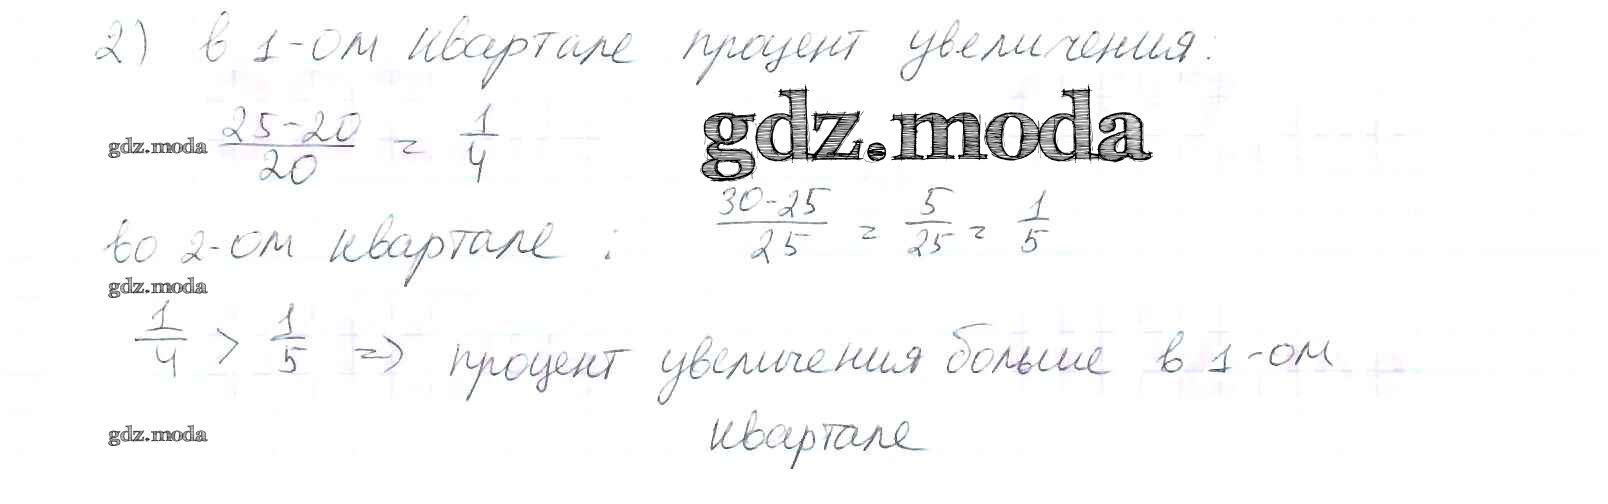 2) в 1-ом квартале процент увеличения:
gdz.moda
(25-20)/20 = 1/4
gdz.moda
во 2-ом квартале : (30-25)/25 = 5/25 = 1/5
gdz.moda
1/4 > 1/5 => процент увеличения больше в 1-ом
квартале
gdz.moda